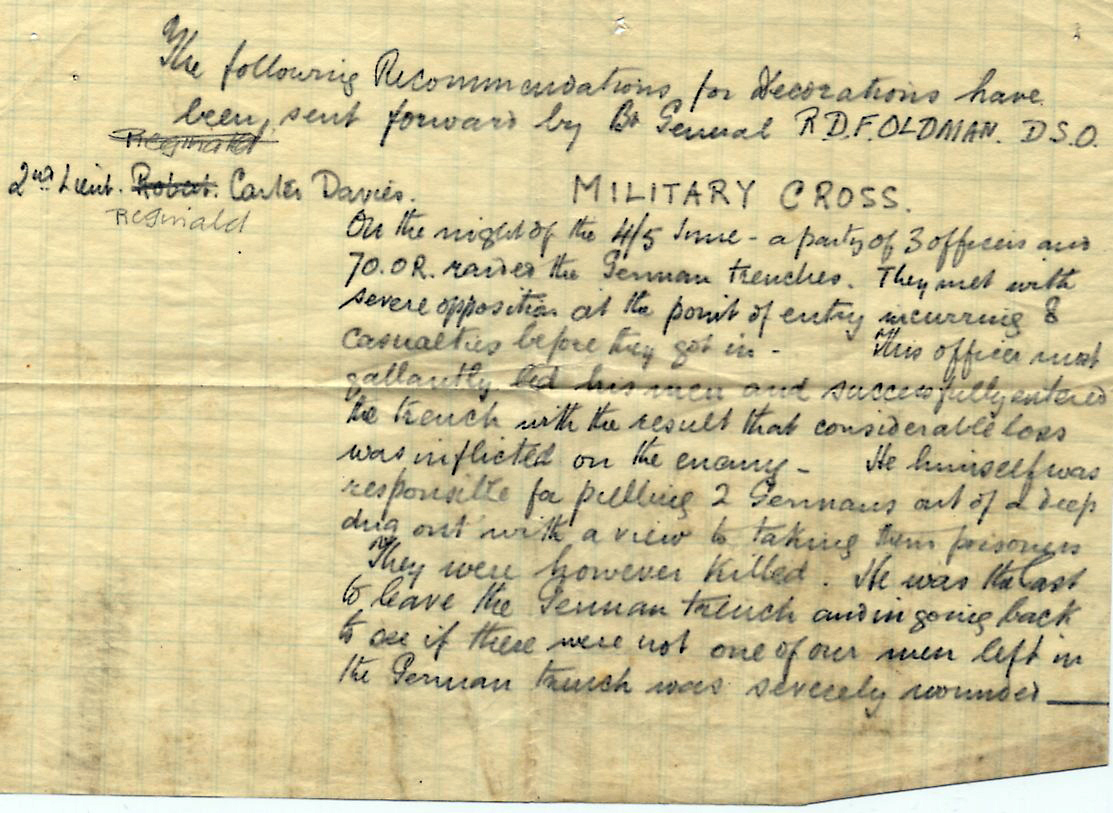 The following Recommendations for Decorations have
been, sent forward by Br General R.D.F.OLDMAN. D.S.O.
Reginald
2nd Lieut. Robert. Carles Davies. MILITARY CROSS.
Reginald
On the night of the 4/5 June - a party of 3 officers and
70. O.R. raided the German trenches. They met with
severe opposition at the point of entry incurring 8
casualties before they got in - This officer most
gallantly led his men and successfully entered
the trench with the result that considerable loss
was inflicted on the enemy - He himself was
responsible for pulling 2 Germans out of a deep
dug out with a view to taking them prisoners
They were however killed. He was the last
to leave the German trench and in going back
to see if there were not one of our men left in
the German trench was severely wounded